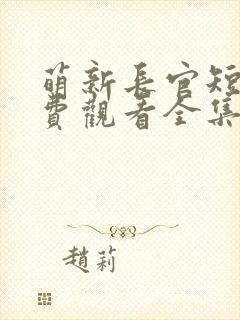 萌新長官短
費觀看全集
趙莉